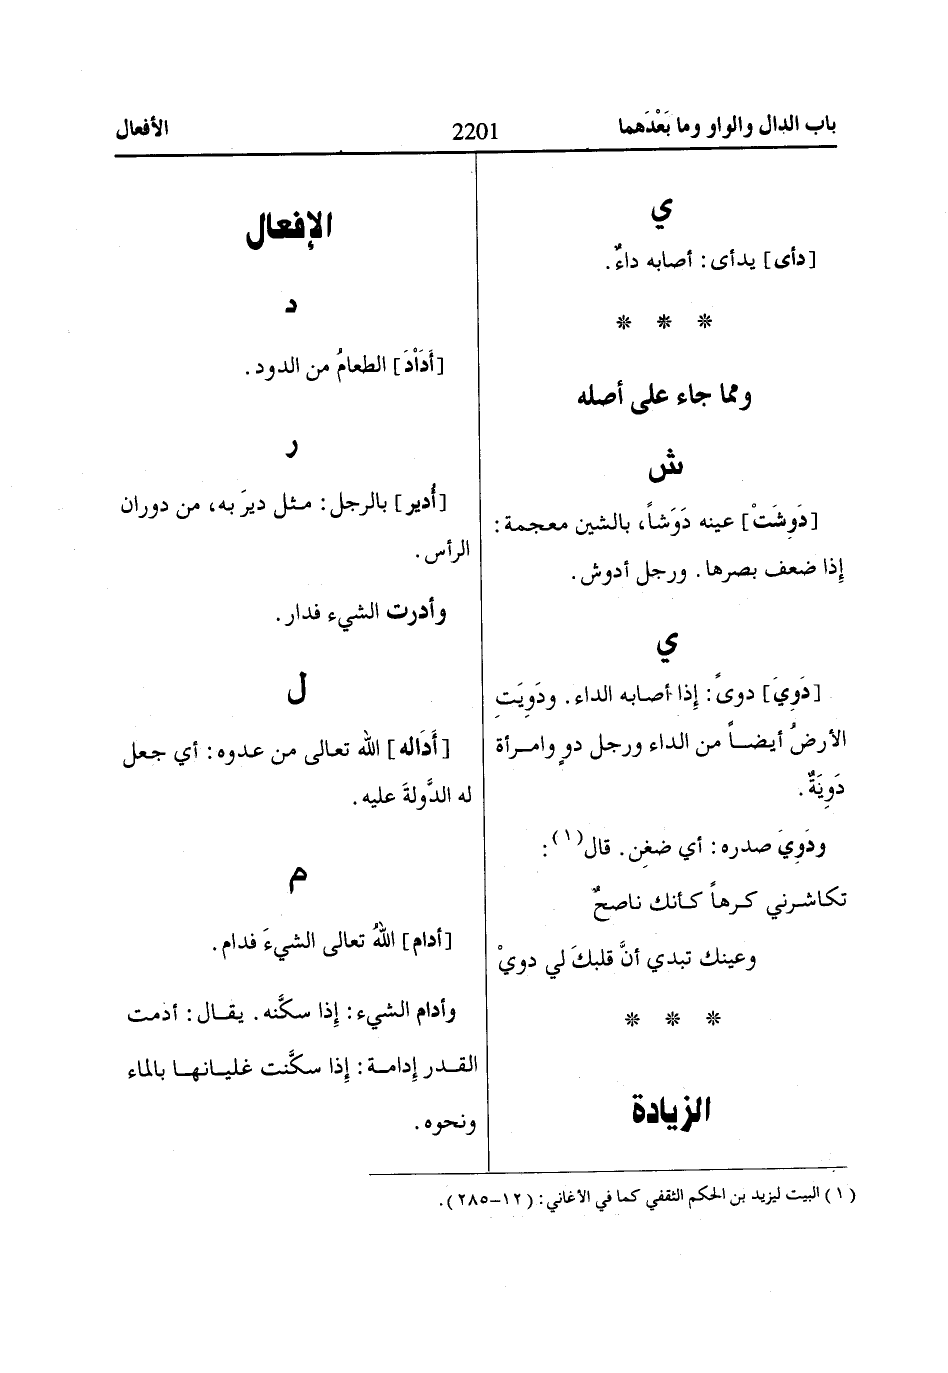 باب الدال والواو وما بَعْدَهما
2201
الأفعال
ي
[دأى] يدأى: أصابه داءٌ.
* * *
ومما جاء على أصله
ش
[دَوِشَتْ] عينه دَوَشاً، بالشين معجمة:
إذا ضعف بصرها. ورجل أدوش.
ي
[دَوِيَ] دوىً: إذا أصابه الداء. ودَوِيَتِ
الأرضُ أيضاً من الداء ورجل دوٍ وامرأة
دَوِيَةٌ.
ودَوِيَ صدره: أي ضغِن. قال(١):
تكاشرني كرهاً كأنك ناصحٌ
وعينك تبدي أنَّ قلبكَ لي دويْ
* * *
الزيادة
الإفعال
د
[أَدَاْدَ] الطعامُ من الدود.
ر
[أُدير] بالرجل: مثل ديرَ به، من دوران
الرأس.
وأدرت الشيء فدار.
ل
[أَدَاله] الله تعالى من عدوه: أي جعل
له الدَّولةَ عليه.
م
[أدام] اللهُ تعالى الشيءَ فدام.
وأدام الشيء: إذا سكَّنه. يقال: أدمت
القدر إدامة: إذا سكَّنت غليانها بالماء
ونحوه.
(١) البيت ليزيد بن الحكم الثقفي كما في الأغاني: (١٢-٢٨٥).